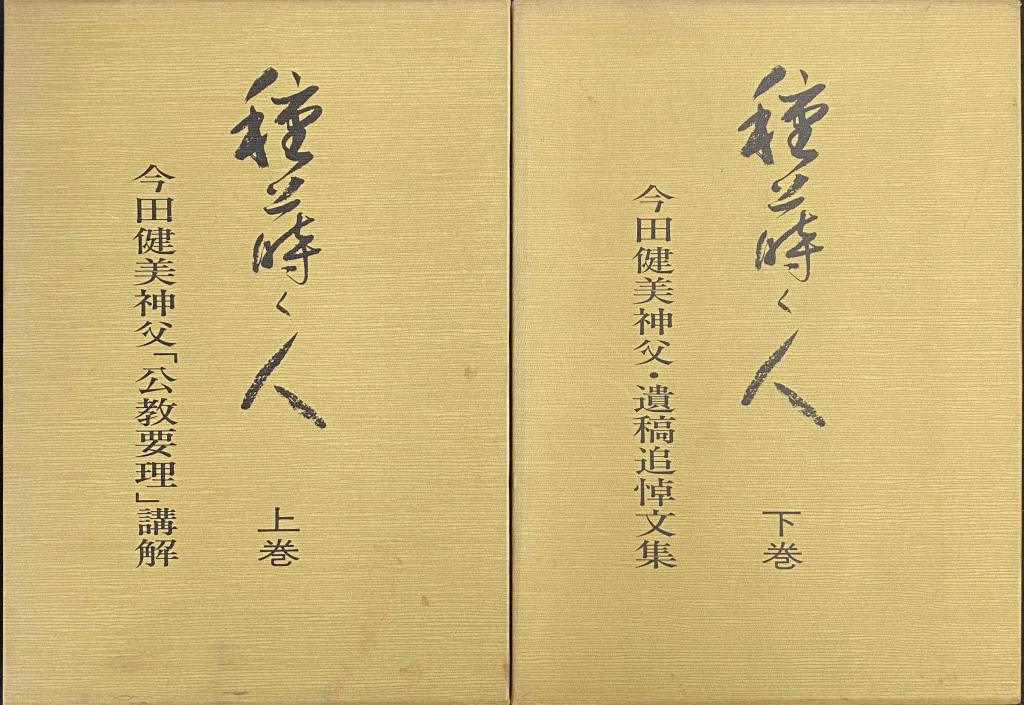 種蒔く人
上巻
今田健美神父「公教要理」講解
種蒔く人
下巻
今田健美神父・遺稿追悼文集